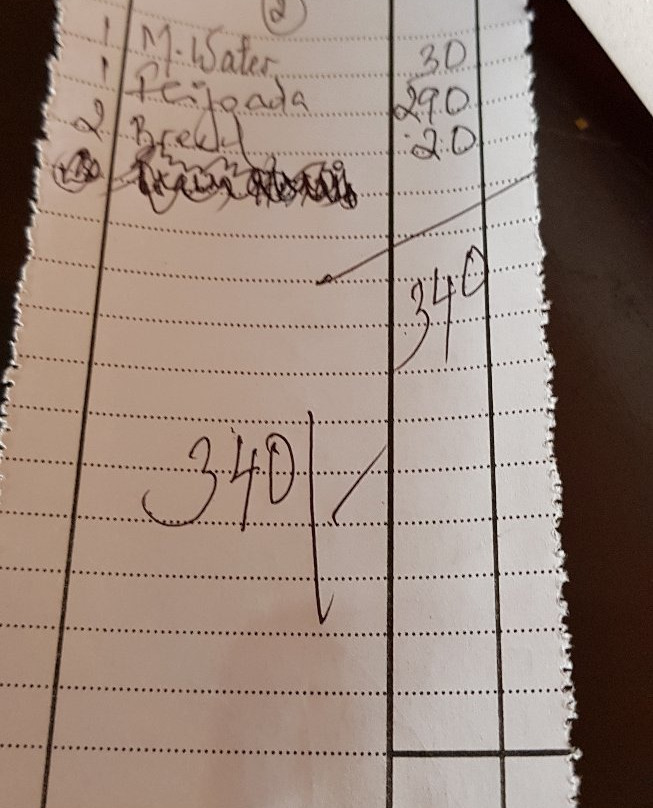 2
1 M.Water 30
1 Feijoada 290
2 Bread 20
340
340